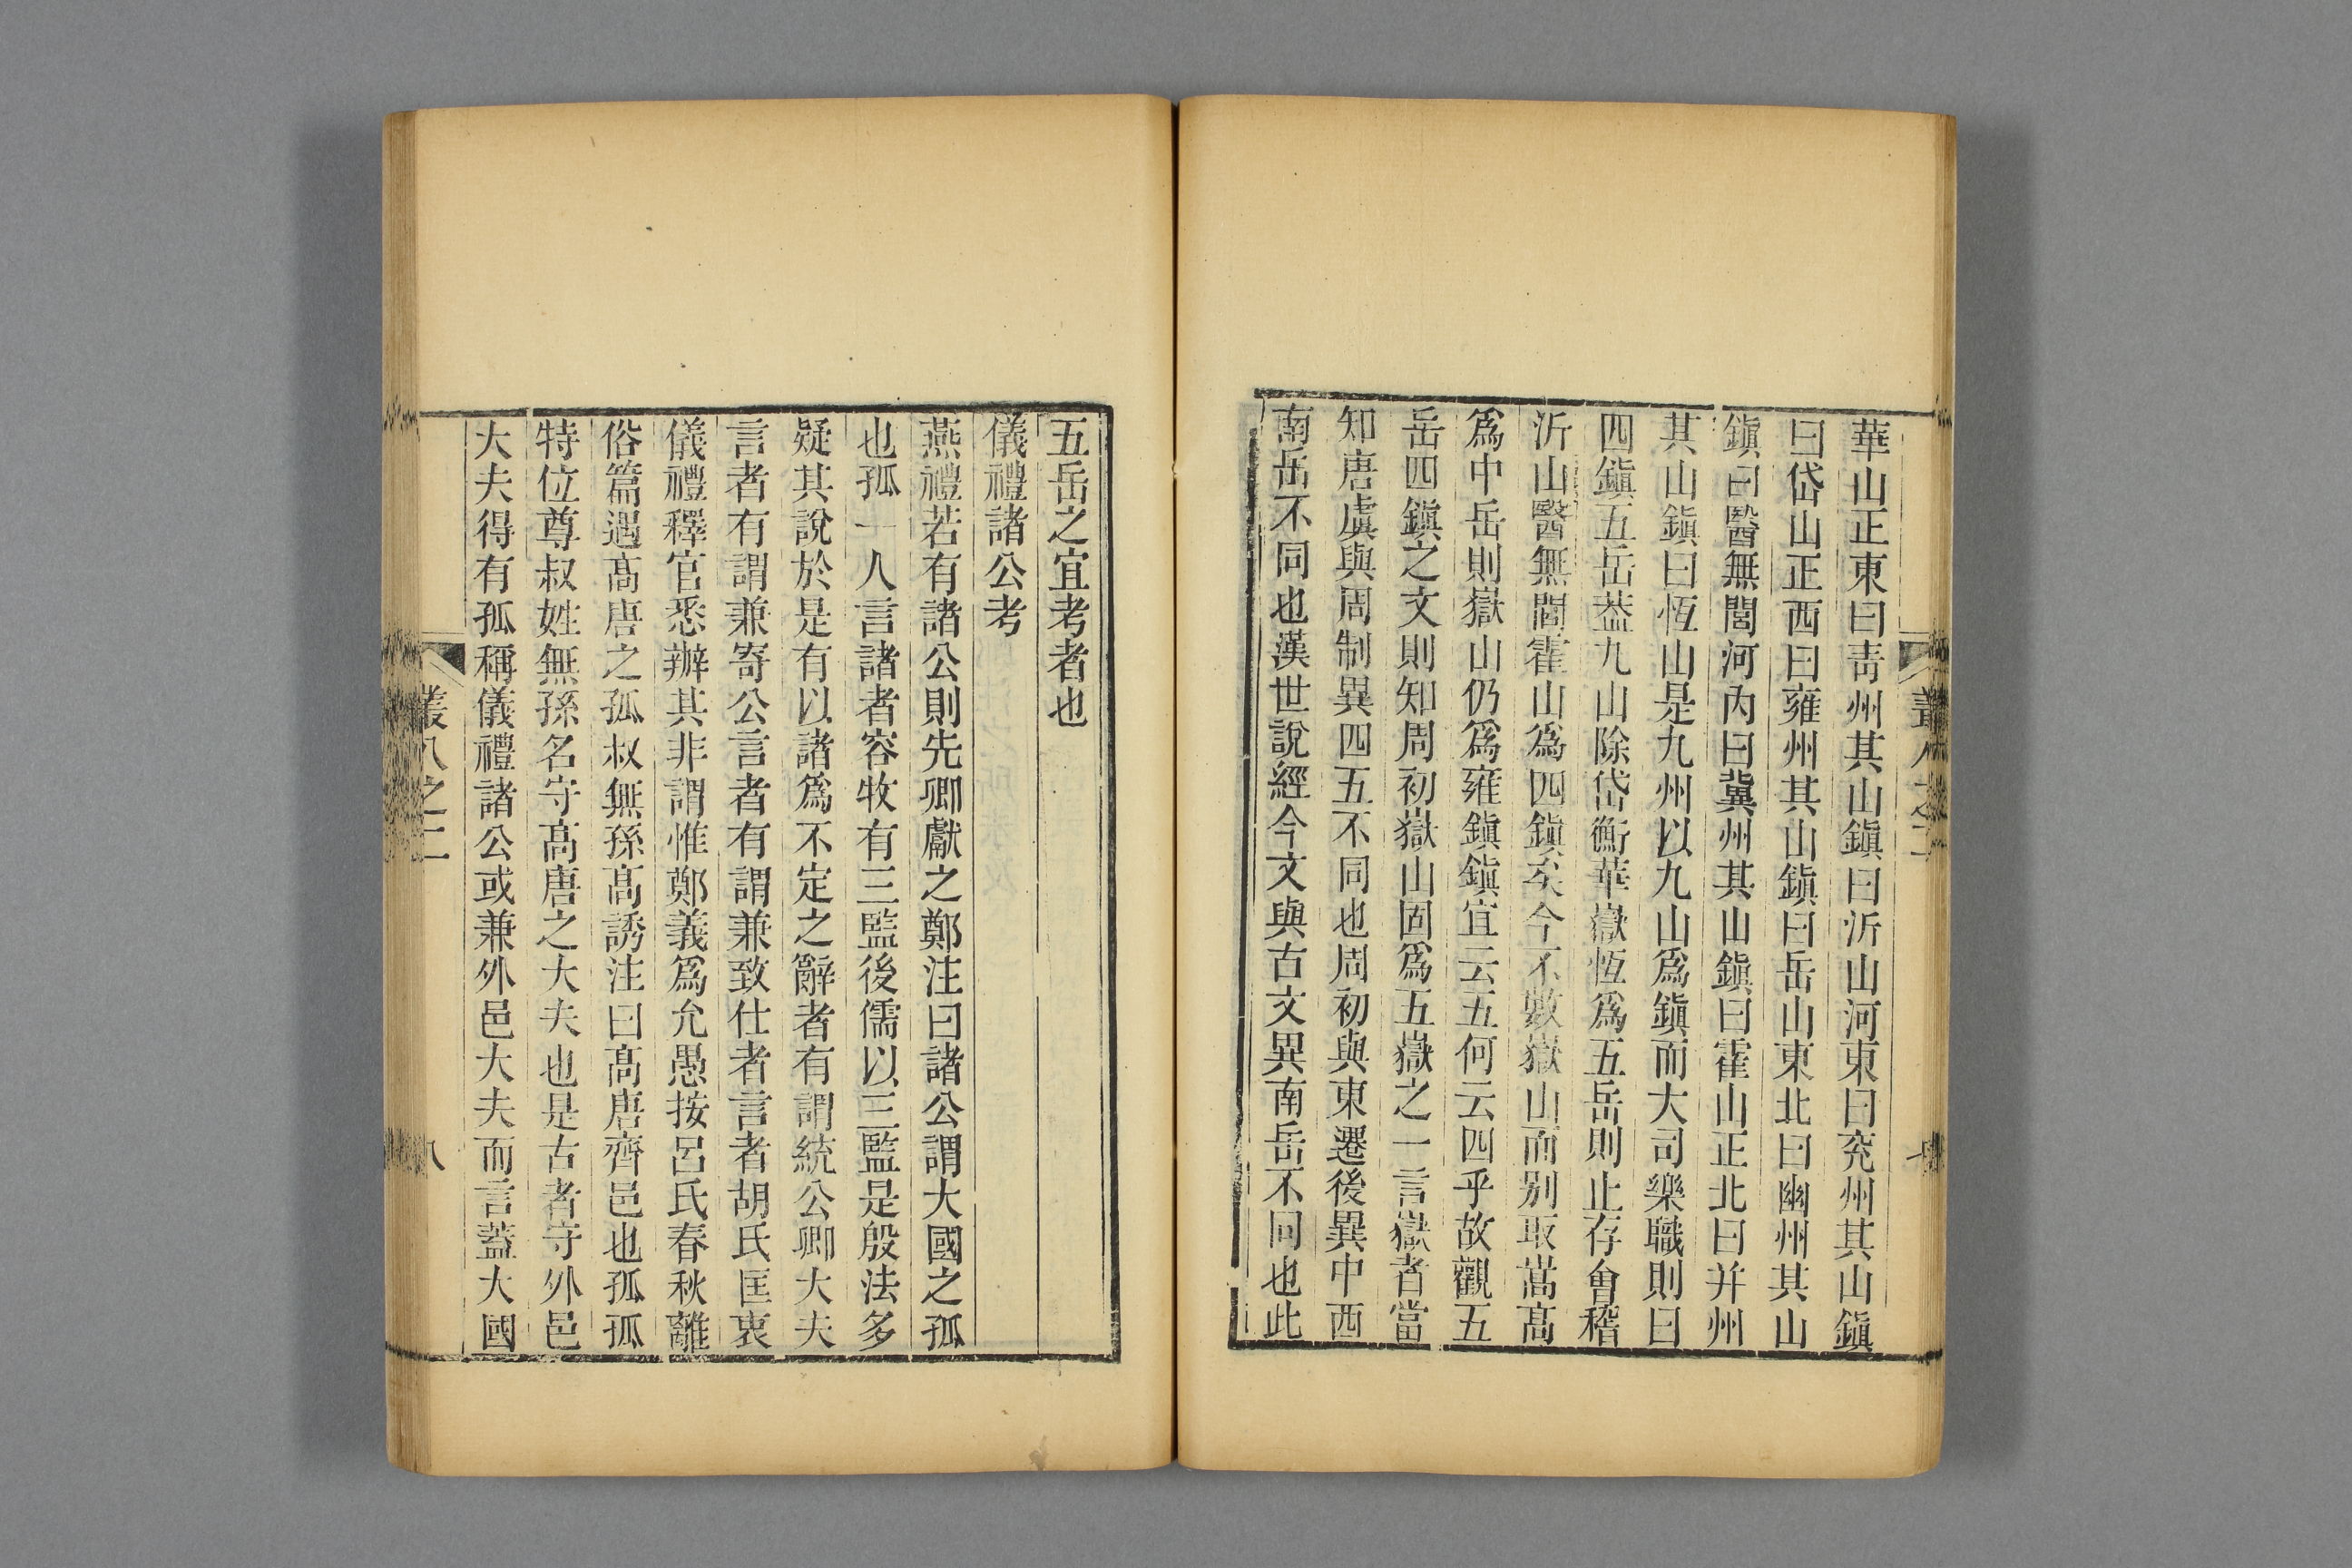 華山正東曰青州其山鎭曰沂山河東曰兖州其山鎭
曰岱山正西曰雍州其山鎭曰岳山東北曰幽州其山
鎭曰醫無閭河內曰冀州其山鎭曰霍山正北曰并州
其山鎭曰恆山是九州以九山爲鎭而大司樂職則曰
四鎭五岳葢九山除岱衡華嶽恆爲五岳則止存會稽
沂山醫無閭霍山爲四鎭矣今不數嶽山而别取嵩高
爲中岳則嶽山仍爲雍鎭鎭宜云五何云四乎故觀五
岳四鎭之文則知周初嶽山固爲五嶽之一言嶽者當
知唐虞與周制異四五不同也周初與東遷後異中西
南岳不同也漢世說經今文與古文異南岳不同也此
五岳之宜考者也
儀禮諸公考
燕禮若有諸公則先卿獻之鄭注曰諸公謂大國之孤
也孤一人言諸者容牧有三監後儒以三監是殷法多
疑其說於是有以諸爲不定之辭者有謂統公卿大夫
言者有謂兼寄公言者有謂兼致仕者言者胡氏匡衷
儀禮釋官悉辦其非謂惟鄭義爲允愚按呂氏春秋離
俗篇遇高唐之孤叔無孫高誘注曰高唐齊邑也孤孤
特位尊叔姓無孫名守高唐之大夫也是古者守外邑
大夫得有孤稱儀禮諸公或兼外邑大夫而言蓋大國
叢八之二
八